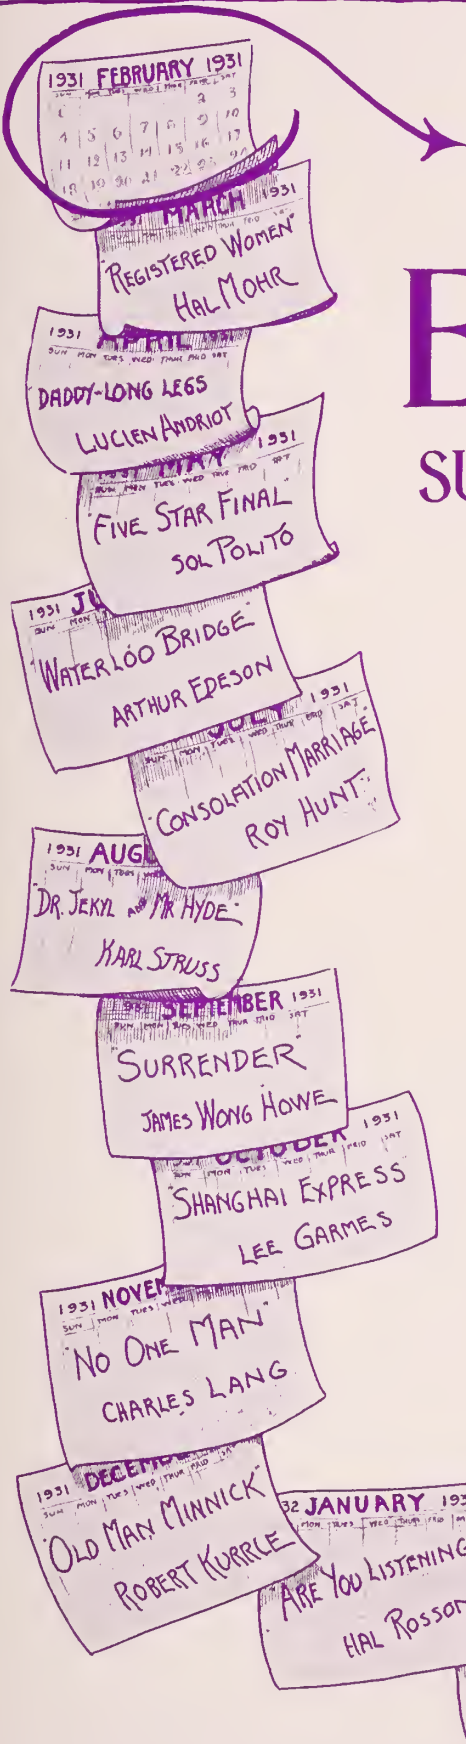 1931 FEBRUARY 1931
SUN MON TUES WED THUR FRID SAT
1 2 3
4 5 6 7 8 9 10
11 12 13 14 15 16 17
18 19 20 21 22 23 24
MARCH 1931
"REGISTERED WOMEN"
HAL MOHR
1931 APRIL
SUN MON TUES WED THUR FRID SAT
DADDY-LONG LEGS
LUCIEN ANDRIOT
MAY 1931
SUN MEN TUES WED THUR FRID SAT
"FIVE STAR FINAL"
SOL POLITO
1931 JU
SUN MON
"WATERLOO BRIDGE"
ARTHUR EDESON
JULY 1931
SUN MON TUES WED THUR FRID SAT
"CONSOLATION MARRIAGE"
ROY HUNT
1931 AUG
SUN MON TUES
"DR. JEKYL AND MR HYDE"
KARL STRUSS
SEPTEMBER 1931
SUN MON TUES WED THUR FRID SAT
"SURRENDER"
JAMES WONG HOWE
OCTOBER 1931
SUN MON TUES WED THUR FRID SAT
"SHANGHAI EXPRESS"
LEE GARMES
1931 NOVEM
SUN MON TUES WED
"NO ONE MAN"
CHARLES LANG
1931 DECEMBE
SUN MON TUES WED THUR FRID SA
"OLD MAN MINNICK"
ROBERT KURRLE
32 JANUARY 193
MON TUES WED THUR FRID
"ARE YOU LISTENING
HAL ROSSON
E
SU